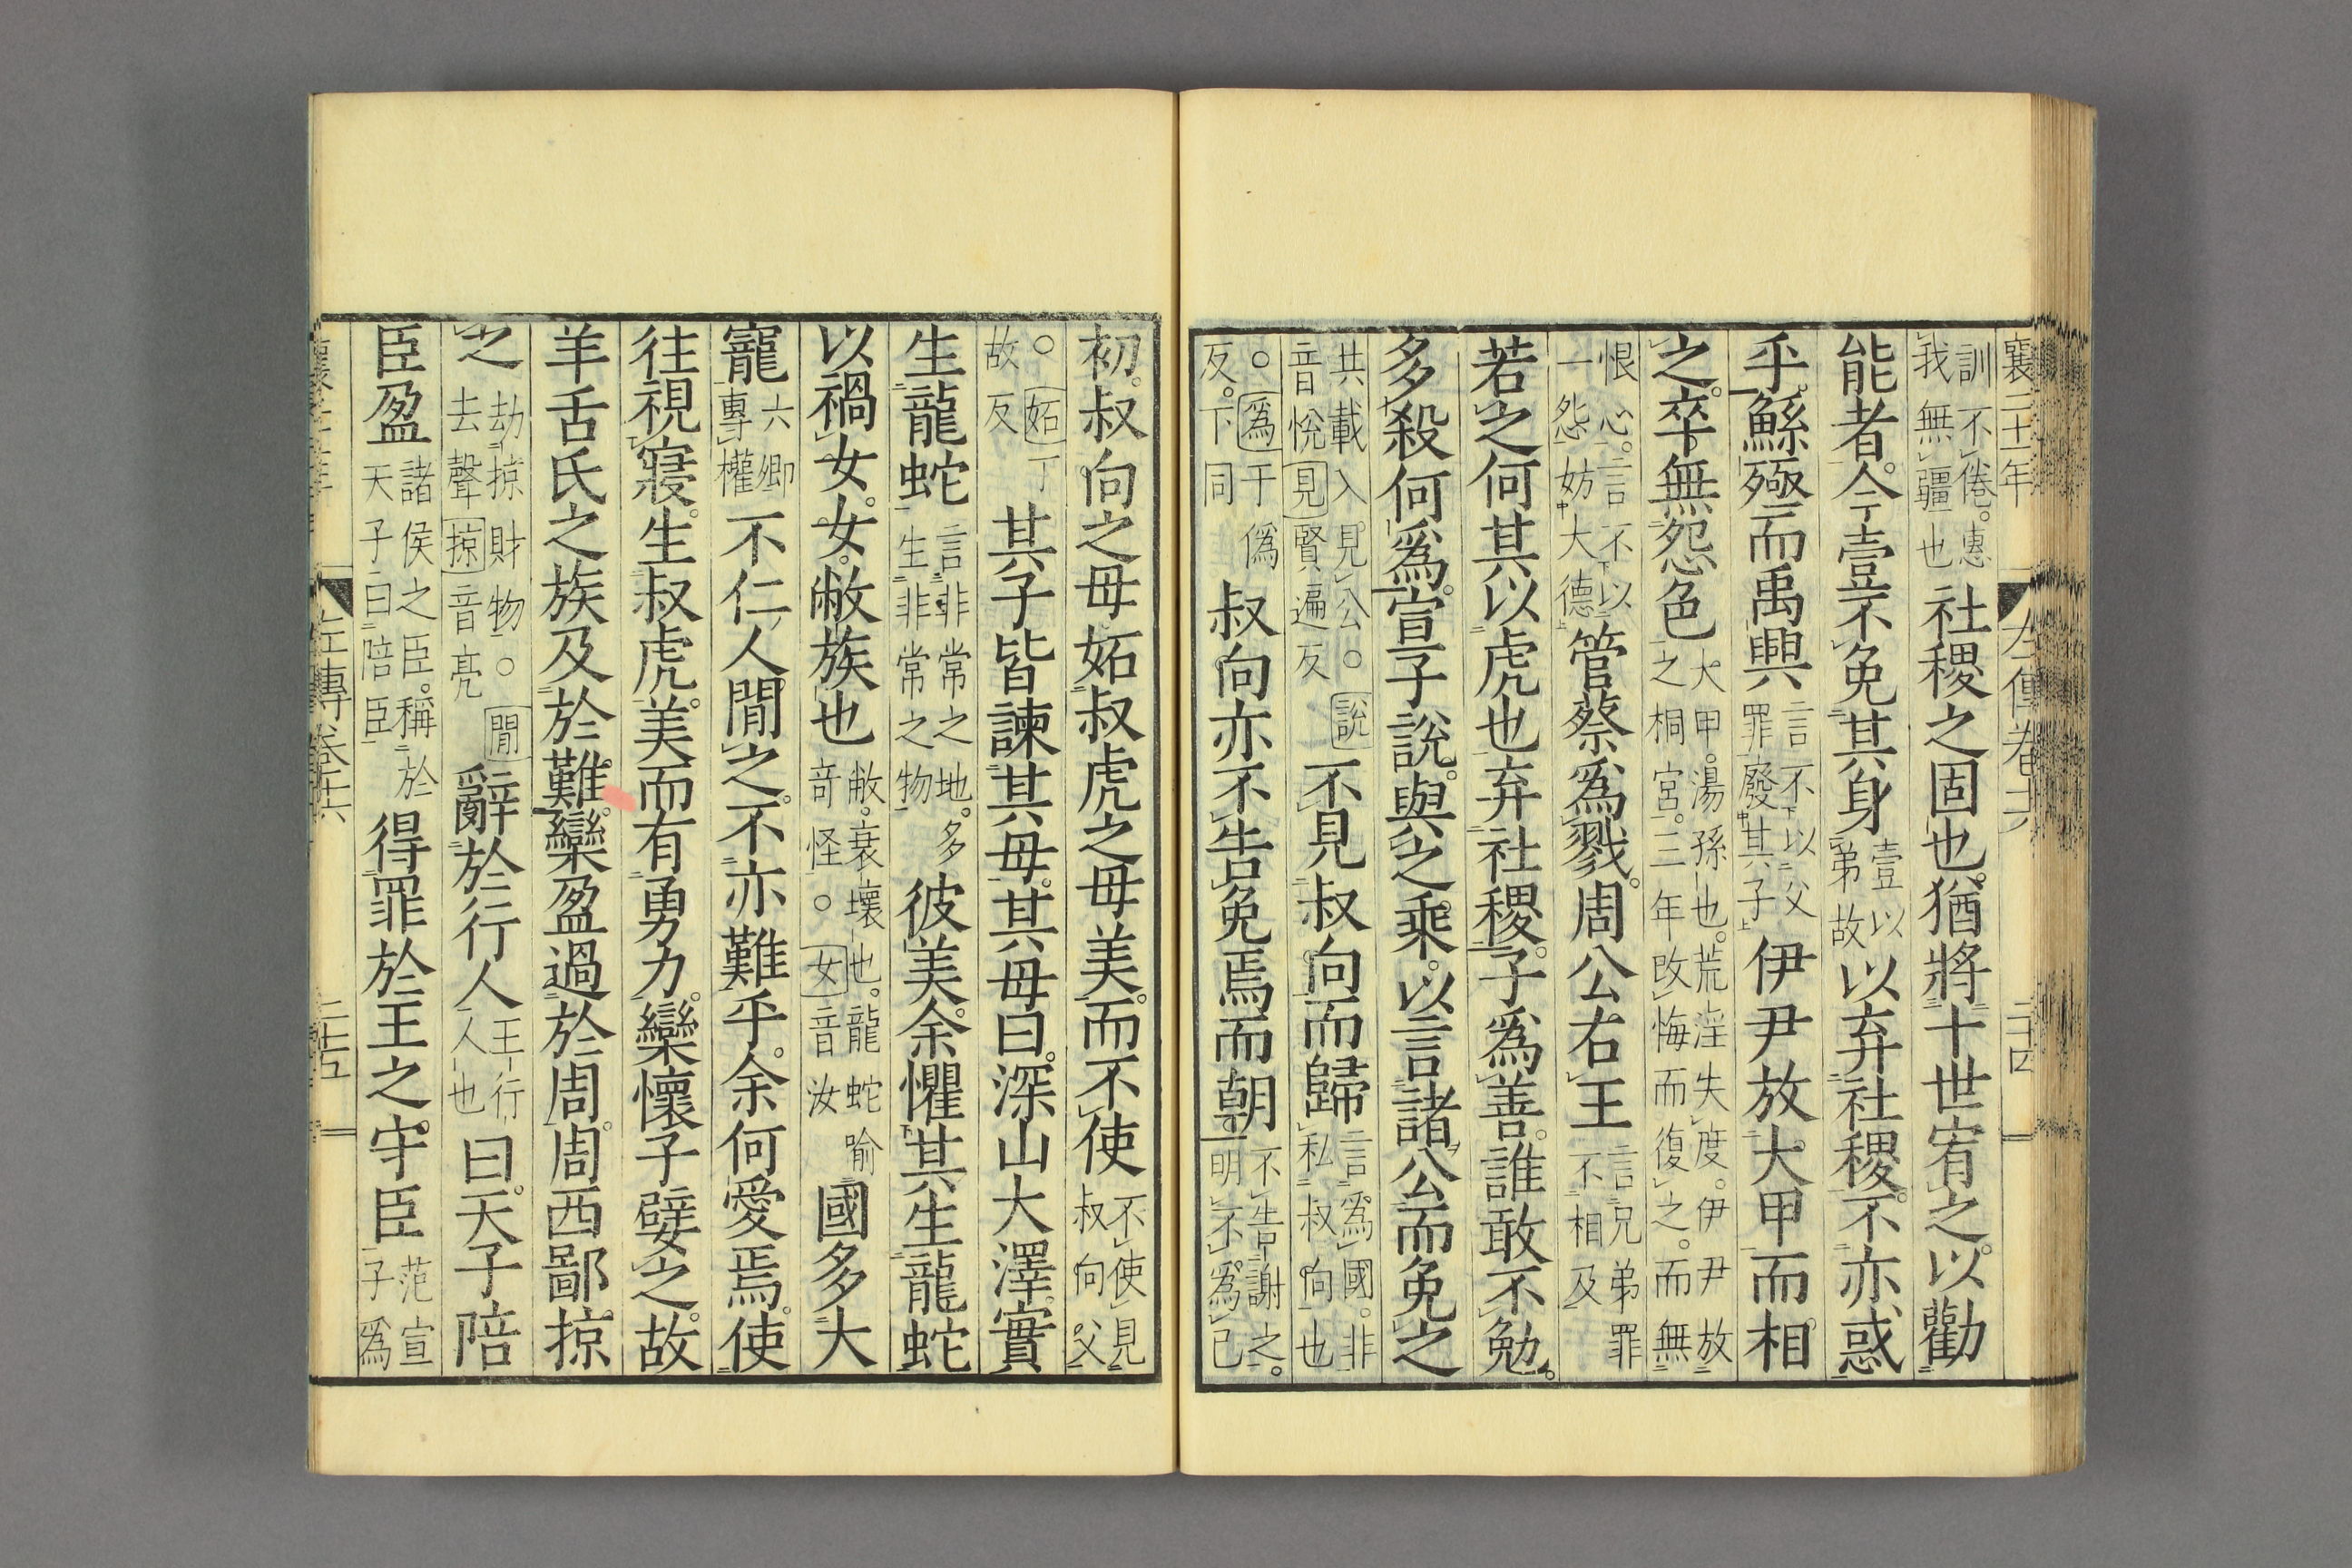 襄二十一年 左傳卷十六 二十四
訓不倦惠我無疆也社稷之固也猶將十世宥之以勸
能者今壹不免其身壹以弟故以弃社稷不亦惑
乎鯀殛而禹興言不以父罪廢其子伊尹放大甲而相
之卒無怨色大甲湯孫也荒淫失度伊尹放之桐宮三年改悔而復之而無
恨心言不以一怨妨大德管蔡爲戮周公右王言兄弟罪不相及
若之何其以虎也弃社稷子爲善誰敢不勉
多殺何爲宣子說與之乘以言諸公而免之
共載入見公○說音悅見賢遍反不見叔向而歸言爲國非私叔向也
○爲于僞反下同叔向亦不告免焉而朝不告謝之明不爲己
初叔向之母妬叔虎之母美而不使不使見叔向父
○妬丁故反其子皆諫其母其母曰深山大澤實
生龍蛇言非常之地多生非常之物彼美余懼其生龍蛇
以禍女女敝族也敝衰壞也龍蛇喻奇怪○女音汝國多大
寵六卿專權不仁人閒之不亦難乎余何愛焉使
往視寢生叔虎美而有勇力欒懷子嬖之故
羊舌氏之族及於難欒盈過於周周西鄙掠
之劫掠財物○閒去聲掠音亮辭於行人王行人也曰天子陪
臣盈諸侯之臣稱於天子曰陪臣得罪於王之守臣范宣子爲
襄二十一年 左傳卷十六 二十五